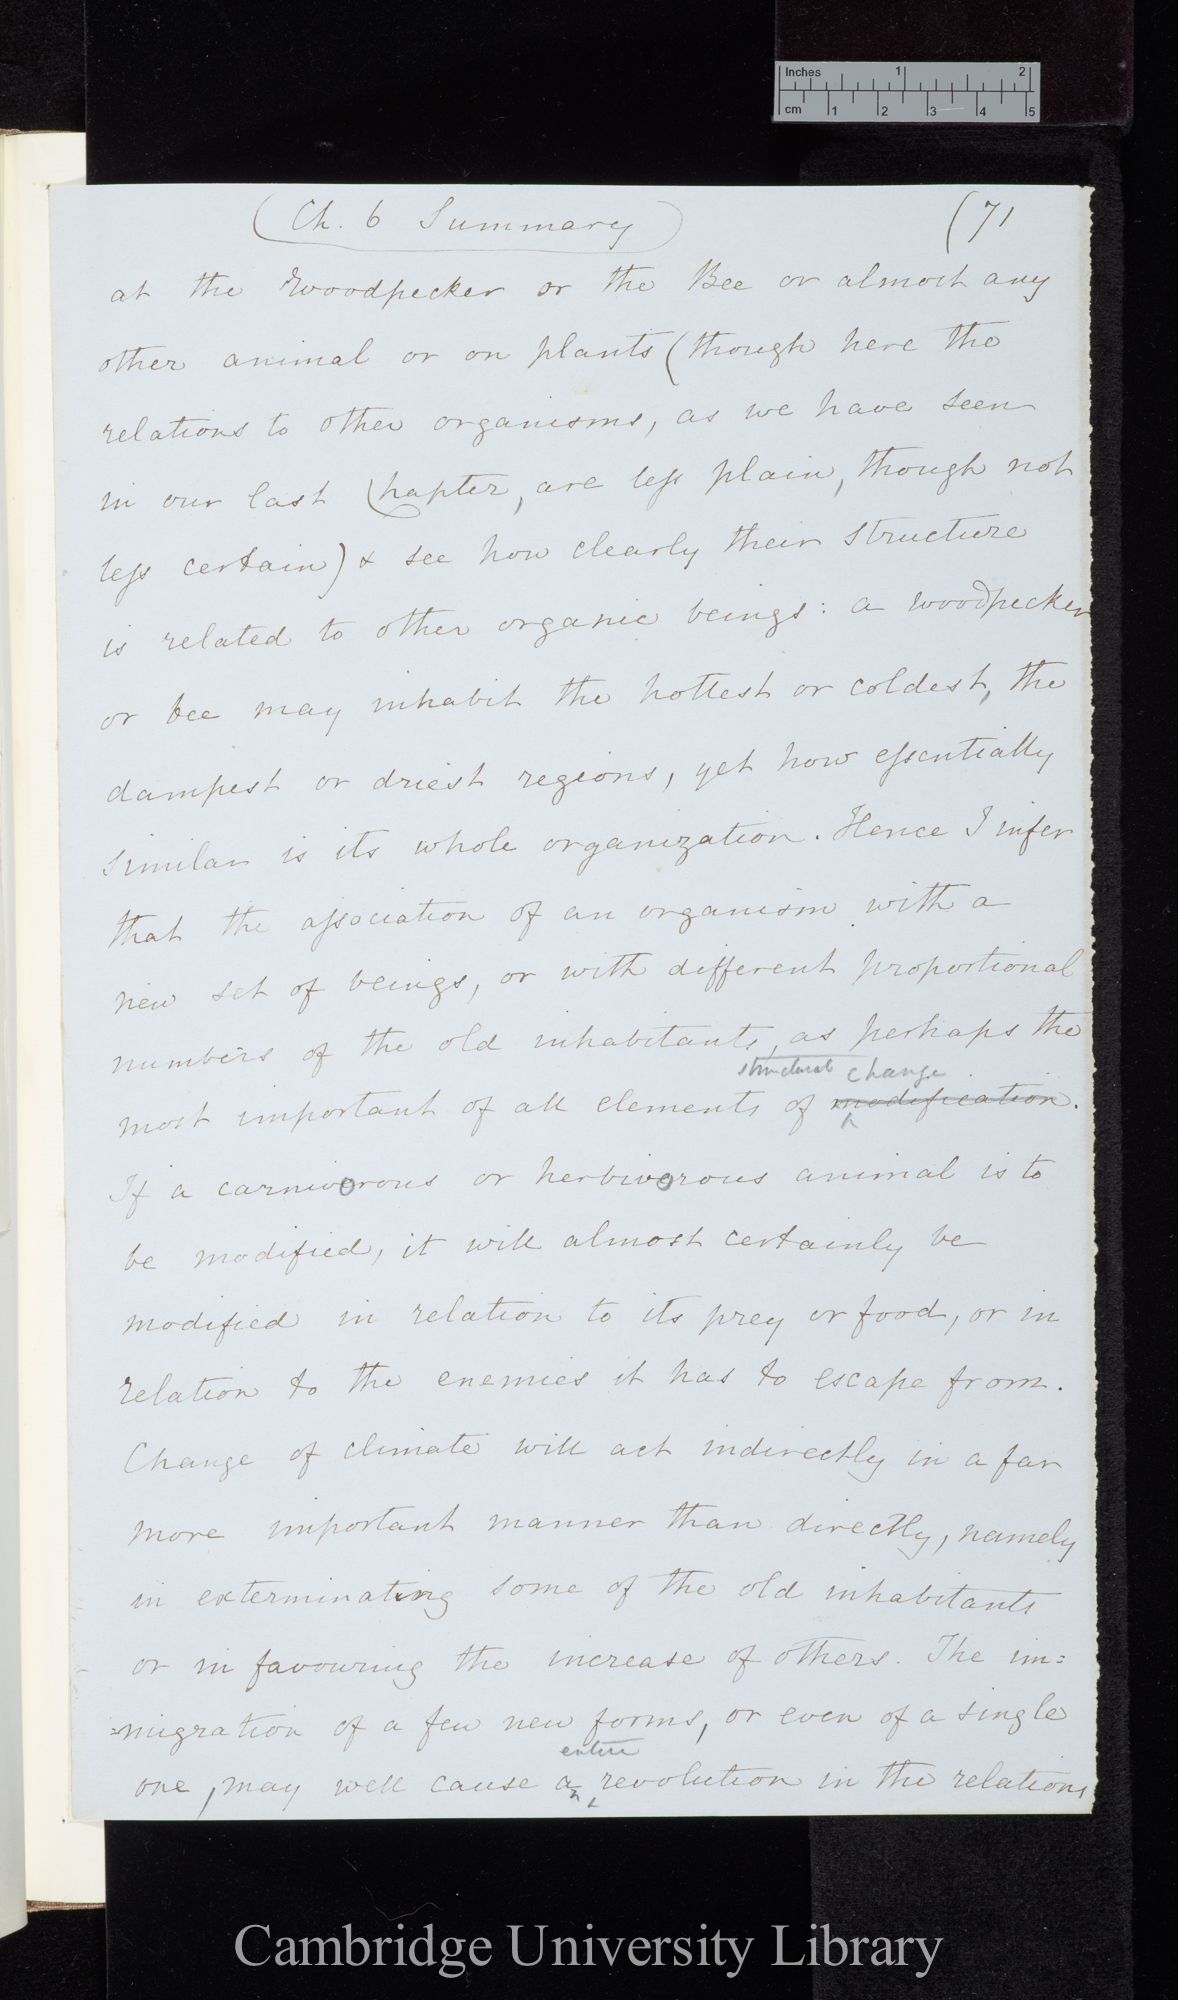 Inches 1 2
cm 1 2 3 4 5
(Ch. 6 Summary) (71
at the Woodpecker or the Bee or almost any
other animal or on plants (though here the
relations to other organisms, as we have seen
in our last Chapter, are less plain, though not
less certain) & see how clearly their structure
is related to other organic beings: a woodpecker
or bee may inhabit the hottest or coldest, the
dampest or driest regions, yet how essentially
similar is its whole organization. Hence I infer
that the association of an organism with a
new set of beings, or with different proportional
numbers of the old inhabitants, as perhaps the
structural change
most important of all elements of modification.
If a carnivorous or herbivorous animal is to
be modified, it will almost certainly be
modified in relation to its prey or food, or in
relation to the enemies it has to escape from.
Change of climate will act indirectly in a far
more important manner than directly, namely
in exterminating some of the old inhabitants
or in favouring the increase of others. The im=
=migration of a few new forms, or even of a single
entire
one, may well cause an revolution in the relations
Cambridge University Library